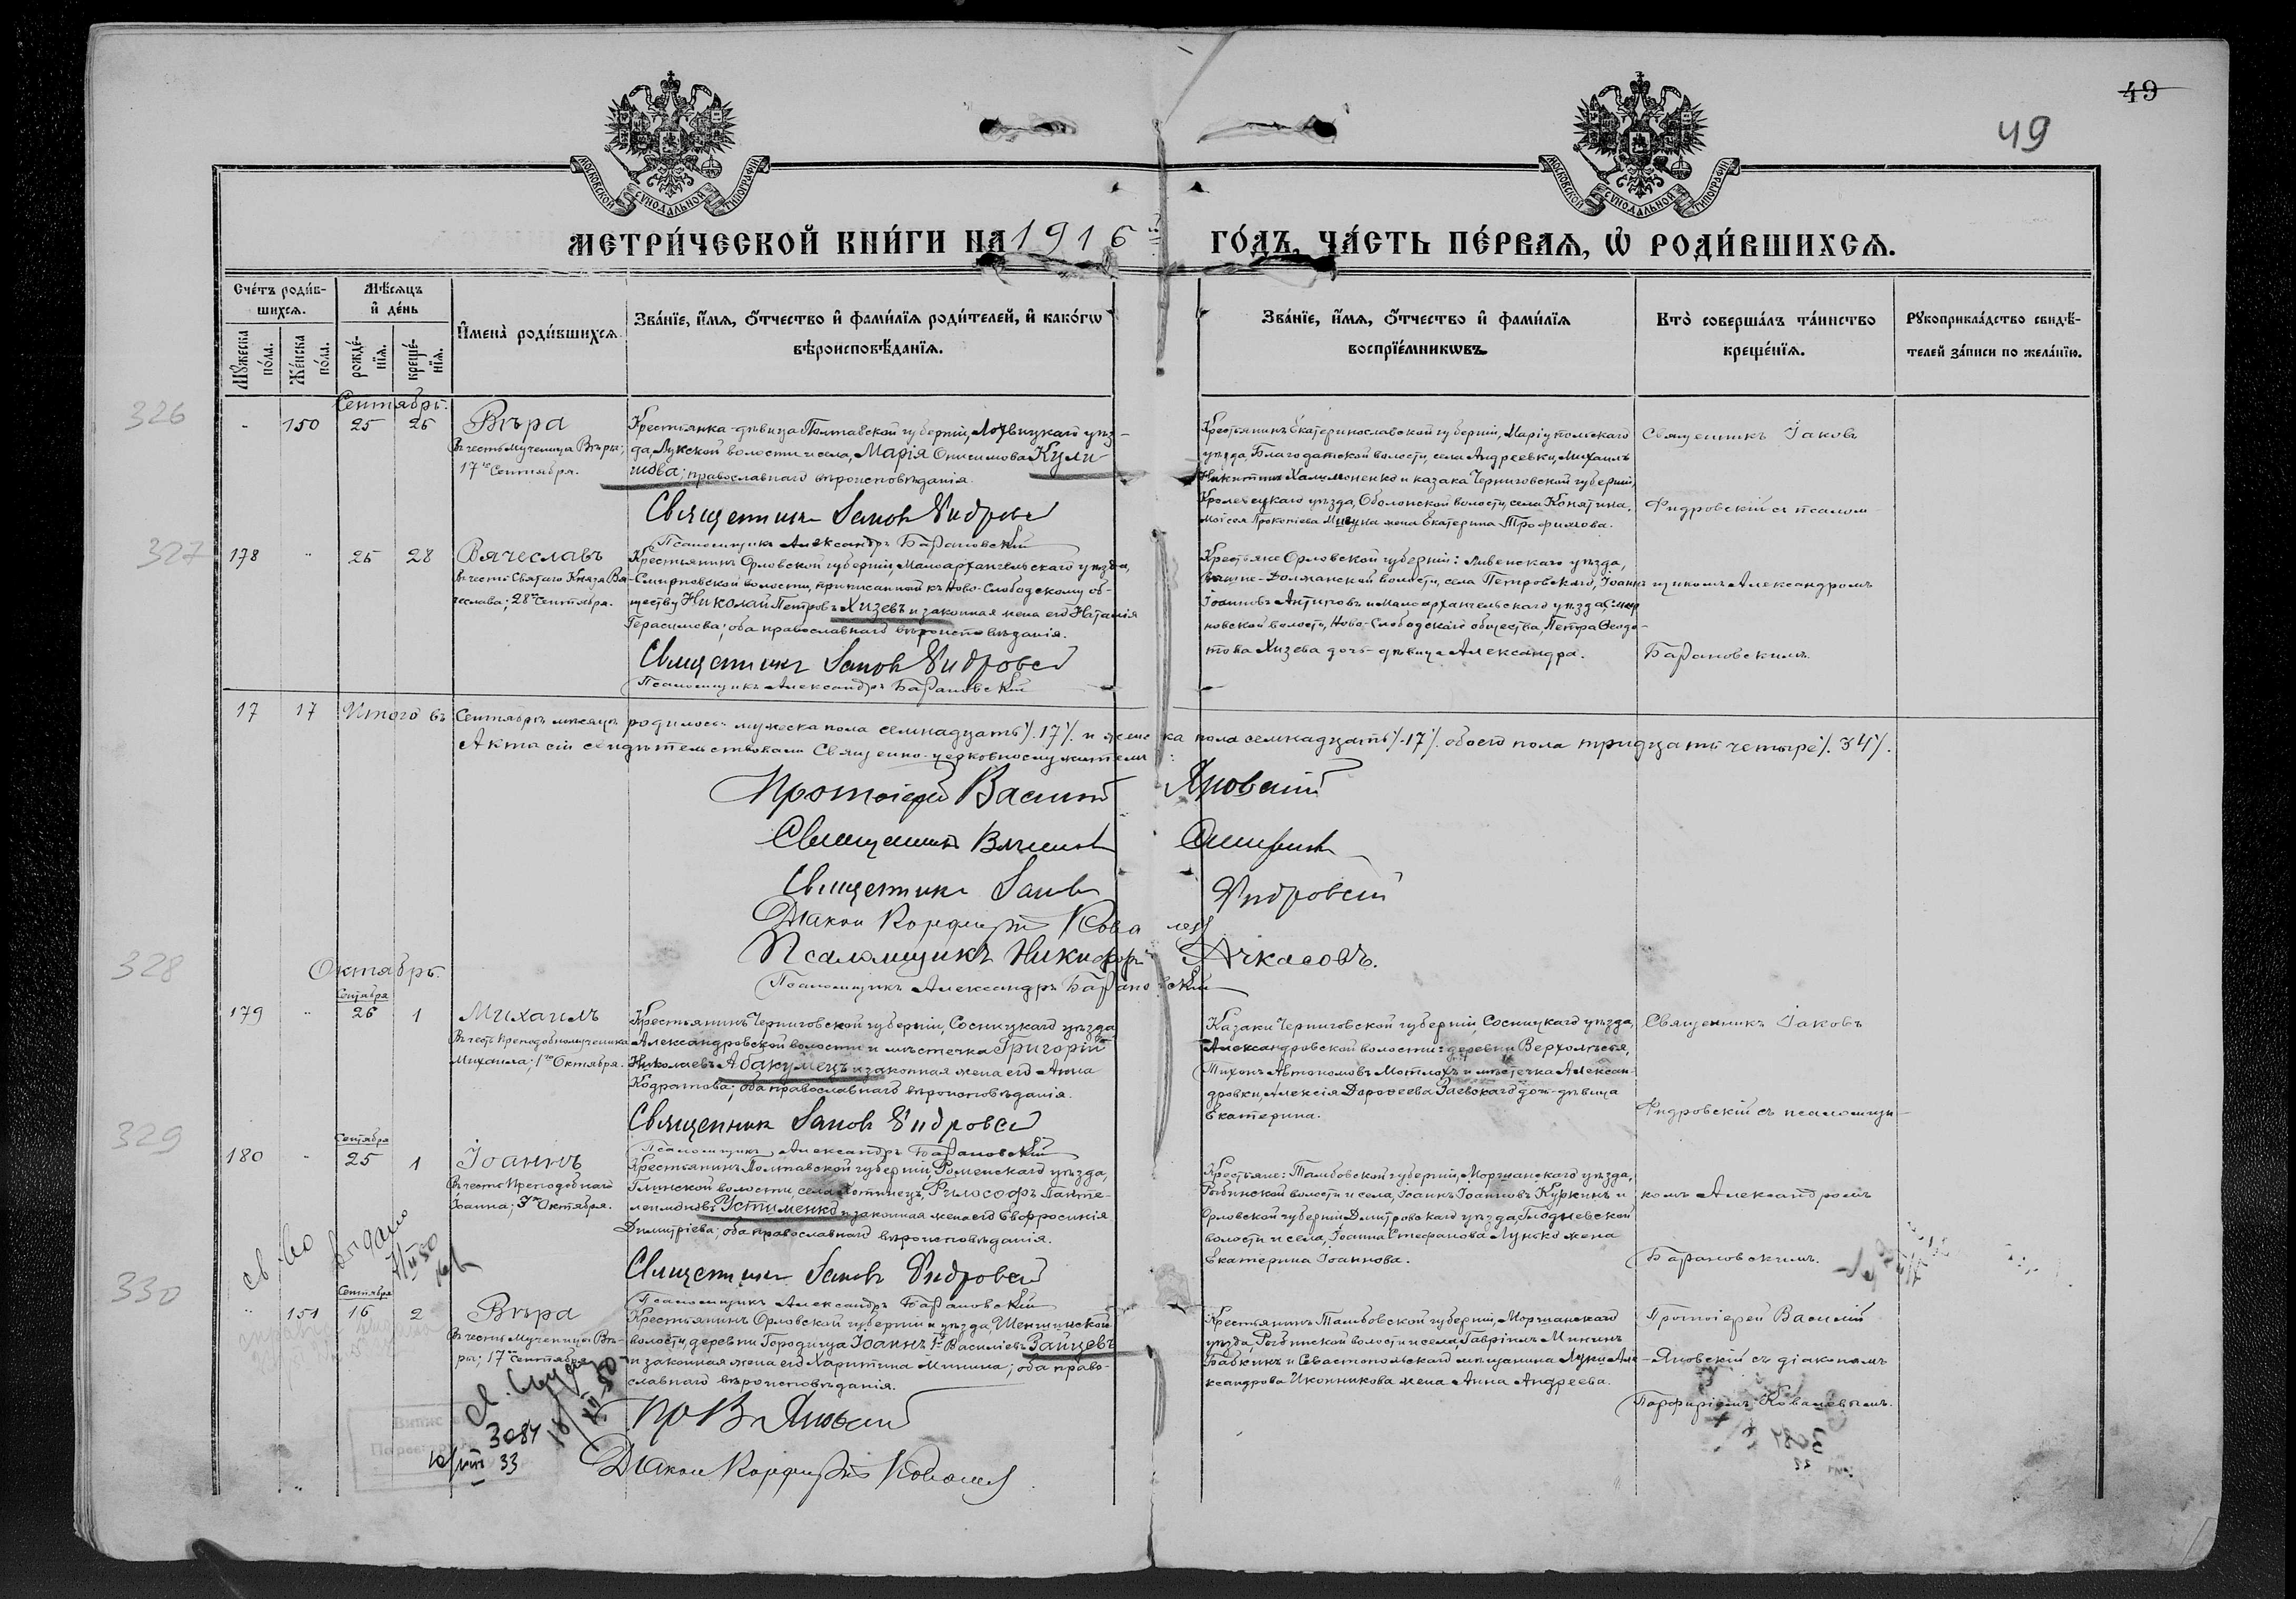 49
49
МОСКОВСКОЙ СѴНОДАЛЬНОЙ ТИПОГРАФІИ
МОСКОВСКОЙ СѴНОДАЛЬНОЙ ТИПОГРАФІИ
МЕТРИ́ЧЕСКОЙ КНИ́ГИ НА 1916 й ГО́ДЪ, ЧА́СТЬ ПЕ́РВАЯ, Ѽ РОДИ́ВШИХСЯ.
Сче́тъ роди́в-
шихся.
Мужеска по́ла.
Же́нска по́ла.
Мѣ́сяцъ
и҆ де́нь
рожде́-
нїя.
креще́-
нїя.
И҆мена̀ роди́вшихся
Зва́нїе, и҆́мя, ѻ҆́тчество и҆ фами́лїя роди́телей, и҆ како́гѡ
вѣроисповѣ́данїя.
Зва́нїе, и҆́мя, ѻ҆́тчество и҆ фами́лїя
воспрїе́мникѡвъ.
Кто̀ соверша́лъ та́инство
креще́нїя.
Рꙋкоприкла́дство свидѣ́-
телей за́писи по жела́нїю.
326
Сентябрь.
- 150 25 26
Вѣра
Въ честь мученицы Вѣры;
17го Сентября.
Крестьянка-дѣвица Полтавской губерніи, Лохвицкаго уѣз-
да, Лукской волости и села, Марія Онисимова Кули-
шова; православнаго вѣроисповѣданія.
Священникъ Іаковъ Фидровскій
Псаломщикъ Александръ Барановскій
Крестьянинъ Екатеринославской губерніи, Маріупольскаго
уѣзда, Благодатской волости, села Андреевки, Михаилъ
Никитинъ Халимоненко и казака Черниговской губерніи,
Кролевецкаго уѣзда, Оболонской волости, села Конятина,
Моісея Прокопіева жена Екатерина Трофимова.
Священникъ Іаковъ
Фидровскій съ псалом-
327
178 " 25 28
Вячеславъ
Въ честь Святаго Князя Вя-
чеслава; 28го Сентября.
Крестьянинъ Орловской губерніи, Малоархангельскаго уѣзда,
Смирновской волости, приписанный къ Ново-Слободскому об-
ществу Николай Петровъ Хизевъ и законная жена его Наталія
Герасимова; оба православнаго вѣроисповѣданія.
Священникъ Іаковъ Фидровскій
Псаломщикъ Александръ Барановскій
Крестьяне Орловской губерніи: Ливенскаго уѣзда,
Должанской волости, села Петровскаго, Іоаннъ
Іоанновъ Антиповъ и Малоархангельскаго уѣзда, Смир-
новской волости, Ново-Слободскаго общества, Петра Ѳеодо-
това Хизева дочь-дѣвица Александра.
щикомъ Александромъ
Барановскимъ.
17 17 Итого въ Сентябрѣ мѣсяцѣ родилось мужеска пола семнадцать /.17/. и женска пола семнадцать /.17/. обоего пола тридцать четыре /.34/.
Акты сіи свидѣтельствовали Священно-церковнослужители:
Протоіерей Василій Яновскій
Священникъ
Священникъ Іаковъ Фидровскій
Діаконъ Порфирій Ковалевъ
Псаломщикъ Никифоръ Ачкасовъ.
Псаломщикъ Александръ Барановскій
328
Октябрь.
Сентября
179 " 26 1
Михаилъ
Въ честь Преподобномученика
Михаила; 1го Октября.
Крестьянинъ Черниговской губерніи, Сосницкаго уѣзда,
Александровской волости и мѣстечка Григорій
Николаевъ Абакумецъ и законная жена его Анна
Кодратова; оба православнаго вѣроисповѣданія.
Священникъ Іаковъ Фидровскій
Псаломщикъ Александръ Барановскій
Казаки Черниговской губерніи, Сосницкаго уѣзда,
Александровской волости: деревни Верхолѣсья,
Тихонъ Автономовъ Мотлохъ и мѣстечка Алексан-
дровки, Алексія Дороѳеева Заевскаго дочь-дѣвица
Екатерина.
Священникъ Іаковъ
Фидровскій съ псаломщи-
329
Сентября
180 - 25 1
Іоаннъ
Въ честь Преподобнаго
Іоанна; 3го Октября.
Крестьянинъ Полтавской губерніи, Роменскаго уѣзда,
Глинской волости, села Хотинецъ, Философъ Панте-
леимоновъ Устименко и законная жена его Евфросинія
Димитріева; оба православнаго вѣроисповѣданія.
Священникъ Іаковъ Фидровскій
Псаломщикъ Александръ Барановскій
Крестьяне: Тамбовской губерніи, Моршанскаго уѣзда,
волости и села, Іоаннъ Іоанновъ Куркинъ и
Орловской губерніи Дмитровскаго уѣзда, Глодневской
волости и села, Іоанна Стефанова Лунько жена
Екатерина Іоаннова.
комъ Александромъ
Барановскимъ.
св-во выдано
330
Сентября
" 151 16 2
Вѣра
Въ честь Мученицы Вѣ-
ры; 17го Сентября.
Крестьянинъ Орловской губерніи и уѣзда,
волости, деревни Городища Іоаннъ Василіевъ Зайцевъ
и законная жена его Харитина Минина; оба право-
славнаго вѣроисповѣданія.
Діаконъ Порфирій Ковалевъ
Крестьянинъ Тамбовской губерніи, Моршанскаго
уѣзда, волости и села, Гавріилъ Мининъ
Бабкинъ и Севастопольскаго мѣщанина Луки Але-
ксандрова Иконникова жена Анна Андреева.
Протоіерей Василій
Яновскій съ діакономъ
Порфиріемъ Ковалевымъ.
3084
33